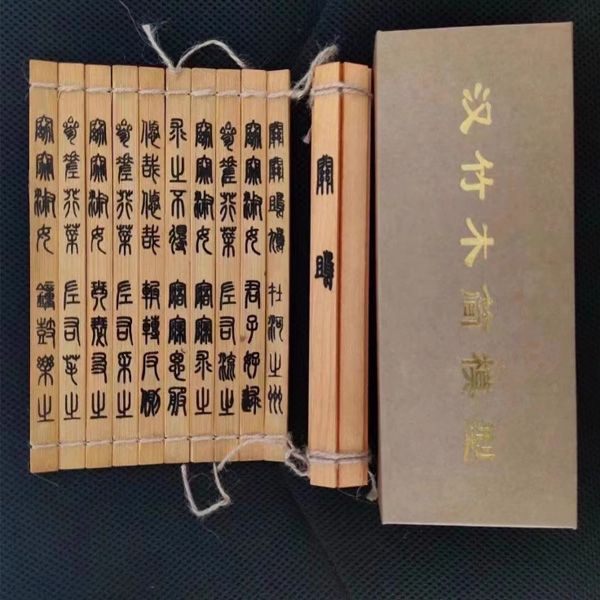 關關雎鳩 在河之州
窈窕淑女 君子好逑
參差荇菜 左右流之
窈窕淑女 寤寐求之
求之不得 寤寐思服
悠哉悠哉 輾轉反側
參差荇菜 左右采之
窈窕淑女 琴瑟友之
參差荇菜 左右芼之
窈窕淑女 鐘鼓樂之
關雎
汉竹木简模型